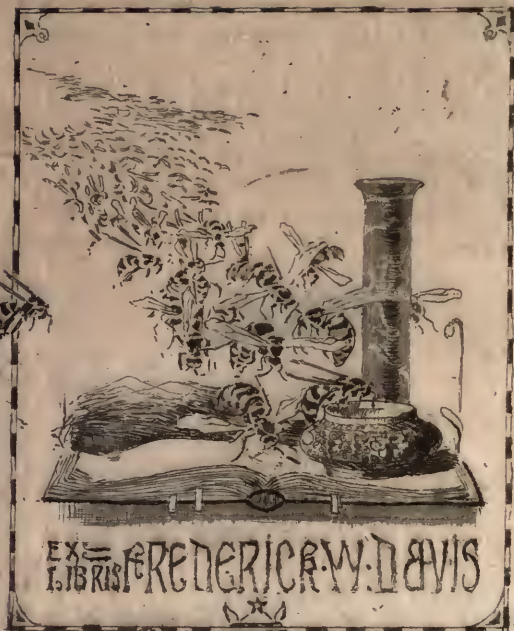 EX=
LIBRIS FREDERICK·W·DAVIS